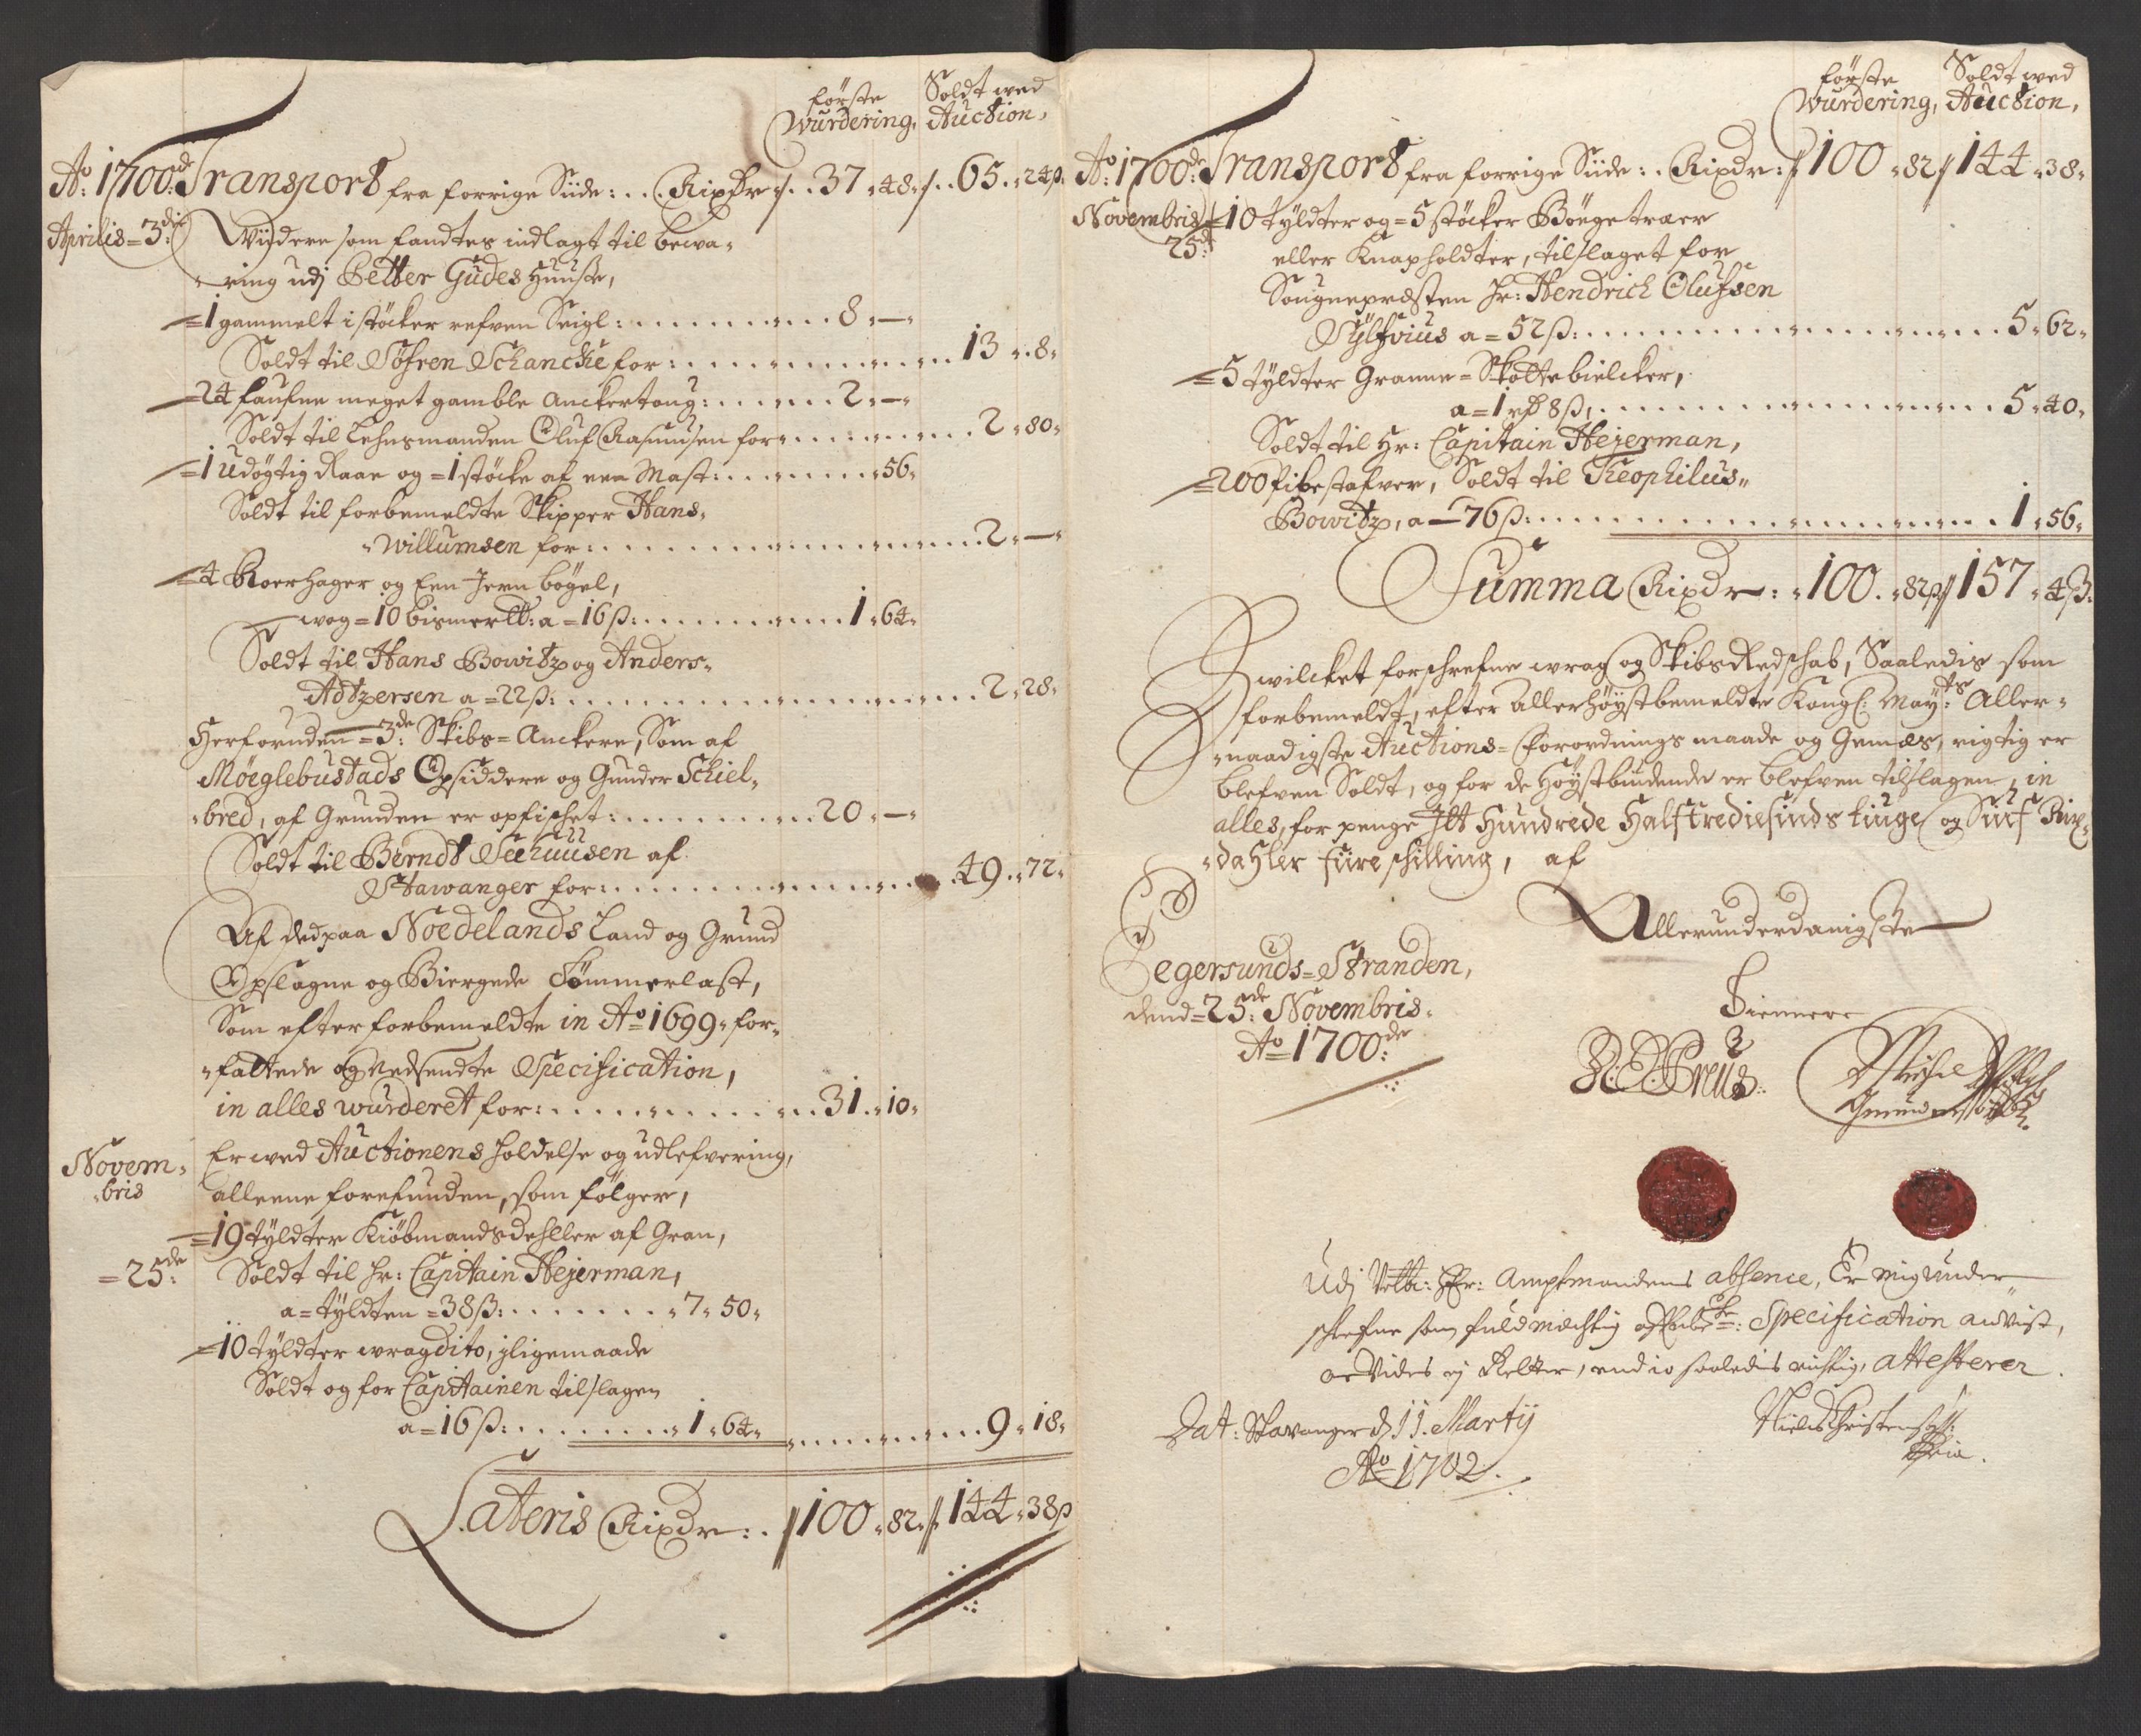 første Soldt wed
Wurdering, Auction,
Ao: 1700de Transport fra forrige Siide: . . Rixdr //. . 37 „ 48 „ //. . 65 . „ 24 ß
Aprilis = 3die Wijdere som fandtes indlagt til bewa-
-ring udj Petter Gudes Huuse,
= 1 gammelt i støcker refven Seigl: . . . . . . . . . . 8 „ —
Soldt til Søfren Schancke for: . . . . . . . . . . 13 „ 8 „
= 24 faufne meget gamble Anckertoug: . . . . . . 2 „ —
Soldt til Lehnsmanden Oluf Rasmusen for . . . . . . . . 2 „ 80 „
= 1 udøgtig Raae og = 1 støcke af een Mast: . . . . . . . „ 56 „
Soldt til forbemeldte Skipper Hans
Willumsen for: . . . . . . . . . . . . . . . 2 „ —
= 4 Roerhager og Een Jern bøgel,
wog = 10 bismer℔: a = 16 ß: . . . . . . . . . . 1 „ 64 „
Soldt til Hans Bowitz og Anders
Adtzersen a = 22 ß: . . . . . . . . . . . . . . . 2 „ 28 „
Herforuden = 3de: Skibs = Anckere, Som af
Møglebustads Opsiddere og Gunder Schiel-
-bred, af Grunden er opfischet: . . . . . . . . . . 20 „ —
Soldt til Berndt Seehuusen af
Stawanger for: . . . . . . . . . . . . . . . 49 . „ 72 „
Af ded paa Noedelands Land og Grund
Opslagne og Biergede Tømmerlast,
Som efter forbemeldte in Ao 1699 „ for-
-fattede og Nedsendte Specification,
in alles wurderet for: . . . . . . . . . . . . . 31 . „ 10 „
Novem-
-bris
Er wed Auctionens holdelse og udlefvering,
alleene forefunden, som følger,
= 19 tyldter Kiøbmandsdehller af Gran,
= 25de: Soldt til Hr: Capitain Hejerman,
a = tyldten = 38 ß: . . . . . . . „ 7 „ 50 „
= 10 tyldter wrag dito, jligemaade
Soldt og for Capitainen tilslagen
a = 16 ß: . . . . . . . „ 1 „ 64 „ . . . . . . . . . . 9 „ 18 „
Lateris Rixdr: . // 100 „ 82 „ //. 144 „ 38 ß
første Soldt wed
Wurdering, Auction,
Ao: 1700de: Transport fra forrige Siide: . Rixdr: // 100 „ 82 // 144 „ 38 „
Novembris = 10 tyldter og = 5 støcker Bøgetræer
25de: eller Knapholdter, tilslaget for
Sougnepresten Hr: Hendrich Olufsen
Sylfvius a = 52 ß: . . . . . . . . . . . . . . . . . 5 „ 62 „
= 5 tyldter Granne = Skottebielcker,
a = 1 rd 8 ß, . . . . . . . . . . . . . . . 5 „ 40 „
Soldt til Hr: Capitain Hejerman,
= 200 Pibestafver, Soldt til Theophilus
Bowitz, a — 76 ß: . . . . . . . . . . . . . . . . . . 1 „ 56 „
Summa Rixdr: „ 100 . „ 82 ß // 157 „ 4 ß:
Hwilcket forschrefne wrag og Skibs Redschab, Saaledis som
forbemeldt, efter allerhøystbemeldte Kongl: Mayts: Aller-
-naadigste Auctions = forordnings maade og Gemæs, rigtig er
blefven Soldt, og for de Høystbudende er blefven tilslagen, in
alles, for penge Itt Hundrede Halftrediesinds tiuge og Siuf Rix-
-dahler fiire schilling, af
Allerunderdanigste
Egersunds = Stranden,
dend = 25de: Novembris
Ao 1700de:
Tiennere
Udj Velb: Hr: Amptmandens absence, Er mig under
schrefne som fuldmechtig Specification anvist,
ey Retter, end io saaledis richtig, attesterer
Dat: Stavanger d 11. Martij
Ao 1702.
Niels Christensen